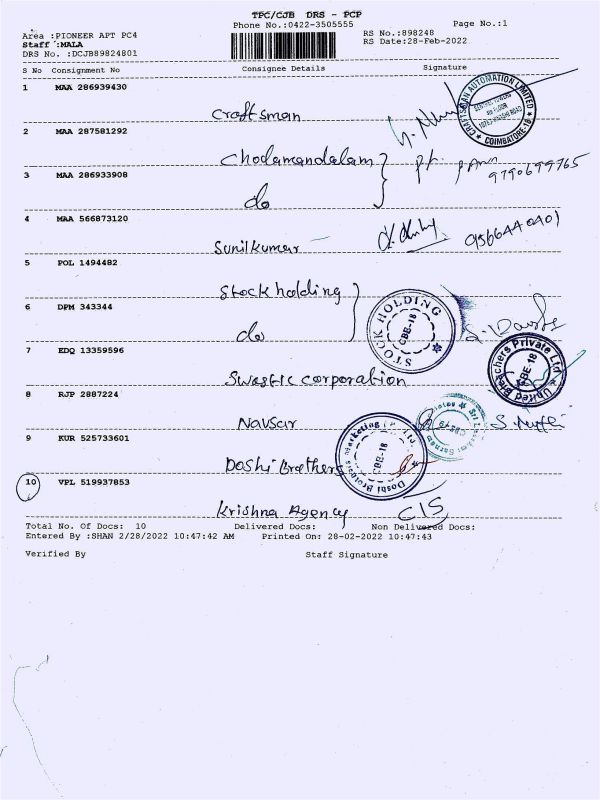 TPC/CJB DRS - PCP
Phone No.:0422-3505555
Page No.:1
Area :PIONEER APT PC4
Staff :MALA
DRS No. :DCJB89824801
RS No.:898248
RS Date:28-Feb-2022
S No Consignment No Consignee Details Signature
1 MAA 286939430
Craftsman
CRAFTSMAN AUTOMATION LIMITED
COIMBATORE-18
2 MAA 287581292
Cholamandalam
3 MAA 286933908
do
9790699765
4 MAA 566873120
Sunilkumar
9566440401
5 POL 1494482
Stock holding
6 DPM 343344
do
STOCK HOLDING
CBE-18
7 EDQ 13359596
Swastic corporation
United Bleachers Private Ltd
CBE-18
8 RJP 2887224
Navsar
9 KUR 525733601
Doshi Brothers
Doshi Brothers Marketing (P) Ltd.
CBE-18
10 VPL 519937853
Krishna Agency
CIS
Total No. Of Docs: 10 Delivered Docs: Non Delivered Docs:
Entered By :SHAN 2/28/2022 10:47:42 AM Printed On: 28-02-2022 10:47:43
Verified By Staff Signature